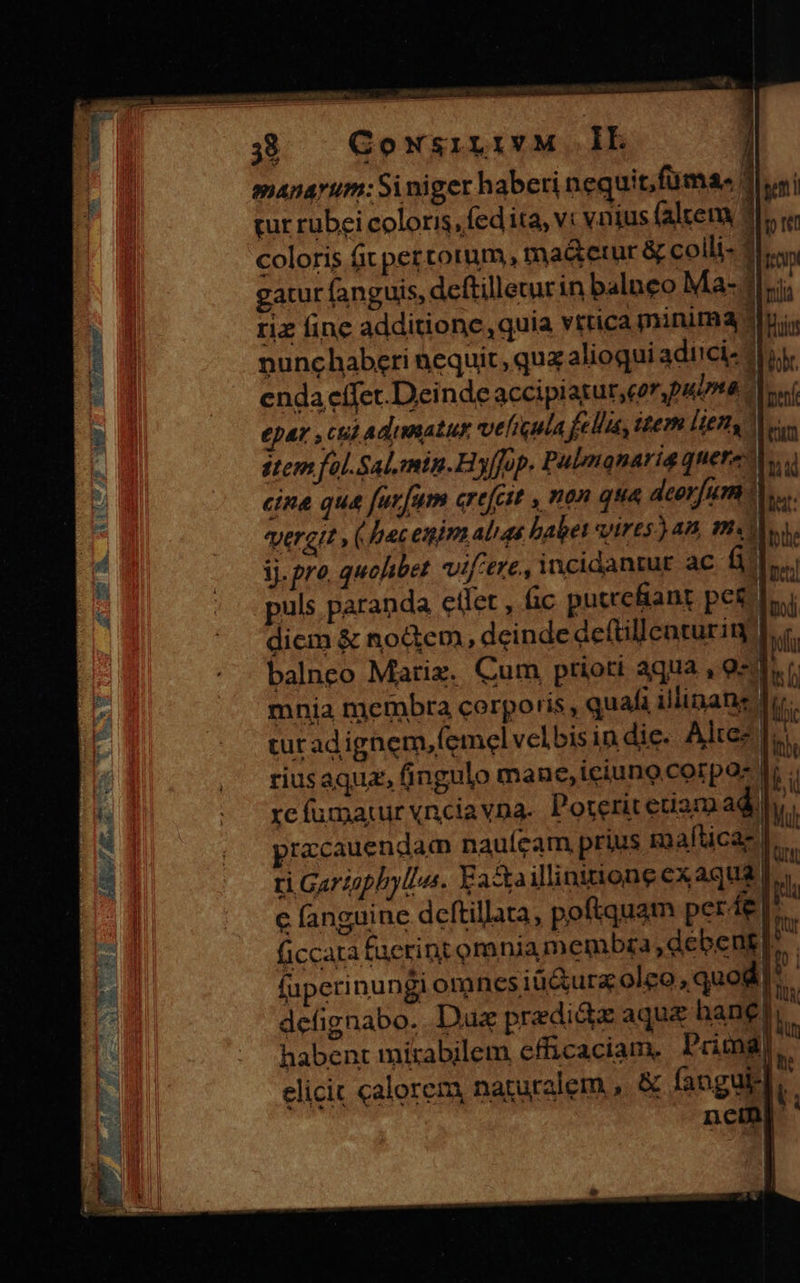 38 CONSILIVM II.
manarum: Si niger haberi nequit, fuma-
tur rubei coloris, ſed ita, vt vnius ſaltem
coloris ſit per totum, mactetur & colli-
gatur ſanguis, deſtilletur in balneo Ma-
riæ ſine additione, quia vttica minima
nunc haberi nequit, quæ alioqui adiici-
enda eſſet. Deinde accipiatur, cor, pulmo
epar, cui adimatur veſicula fellis, item lien,
item fol. Sal. min. Hyſſop. Pulmonariæ quer-
cinæ quæ ſurſum creſcit, non quæ deorſum
vergit, (hæc enim alias habet vires) an. m.
ij. pro quolibet viſcere, incidantur ac ſi
puls paranda eſſet, ſic putrefiant per
diem & noctem, deinde deſtillentur in
balneo Mariæ. Cum priori aqua, o-
mnia membra corporis, quaſi illinan-
tur ad ignem, ſemel vel bis in die. Alte-
rius aquæ, ſingulo mane, ieiuno corpo-
re ſumatur vncia vna. Poterit etiam ad
præcauendam nauſeam prius maſtica-
ri Gariophyllus. Facta illinitione ex aqua
e ſanguine deſtillata, poſtquam per ſe
ſiccata fuerint omnia membra, debent
ſuperinungi omnes iūcturæ oleo, quod
deſignabo. Duæ prædictæ aquæ hanc
habent mirabilem efficaciam. Prima
elicit calorem naturalem, & ſangui-
nem